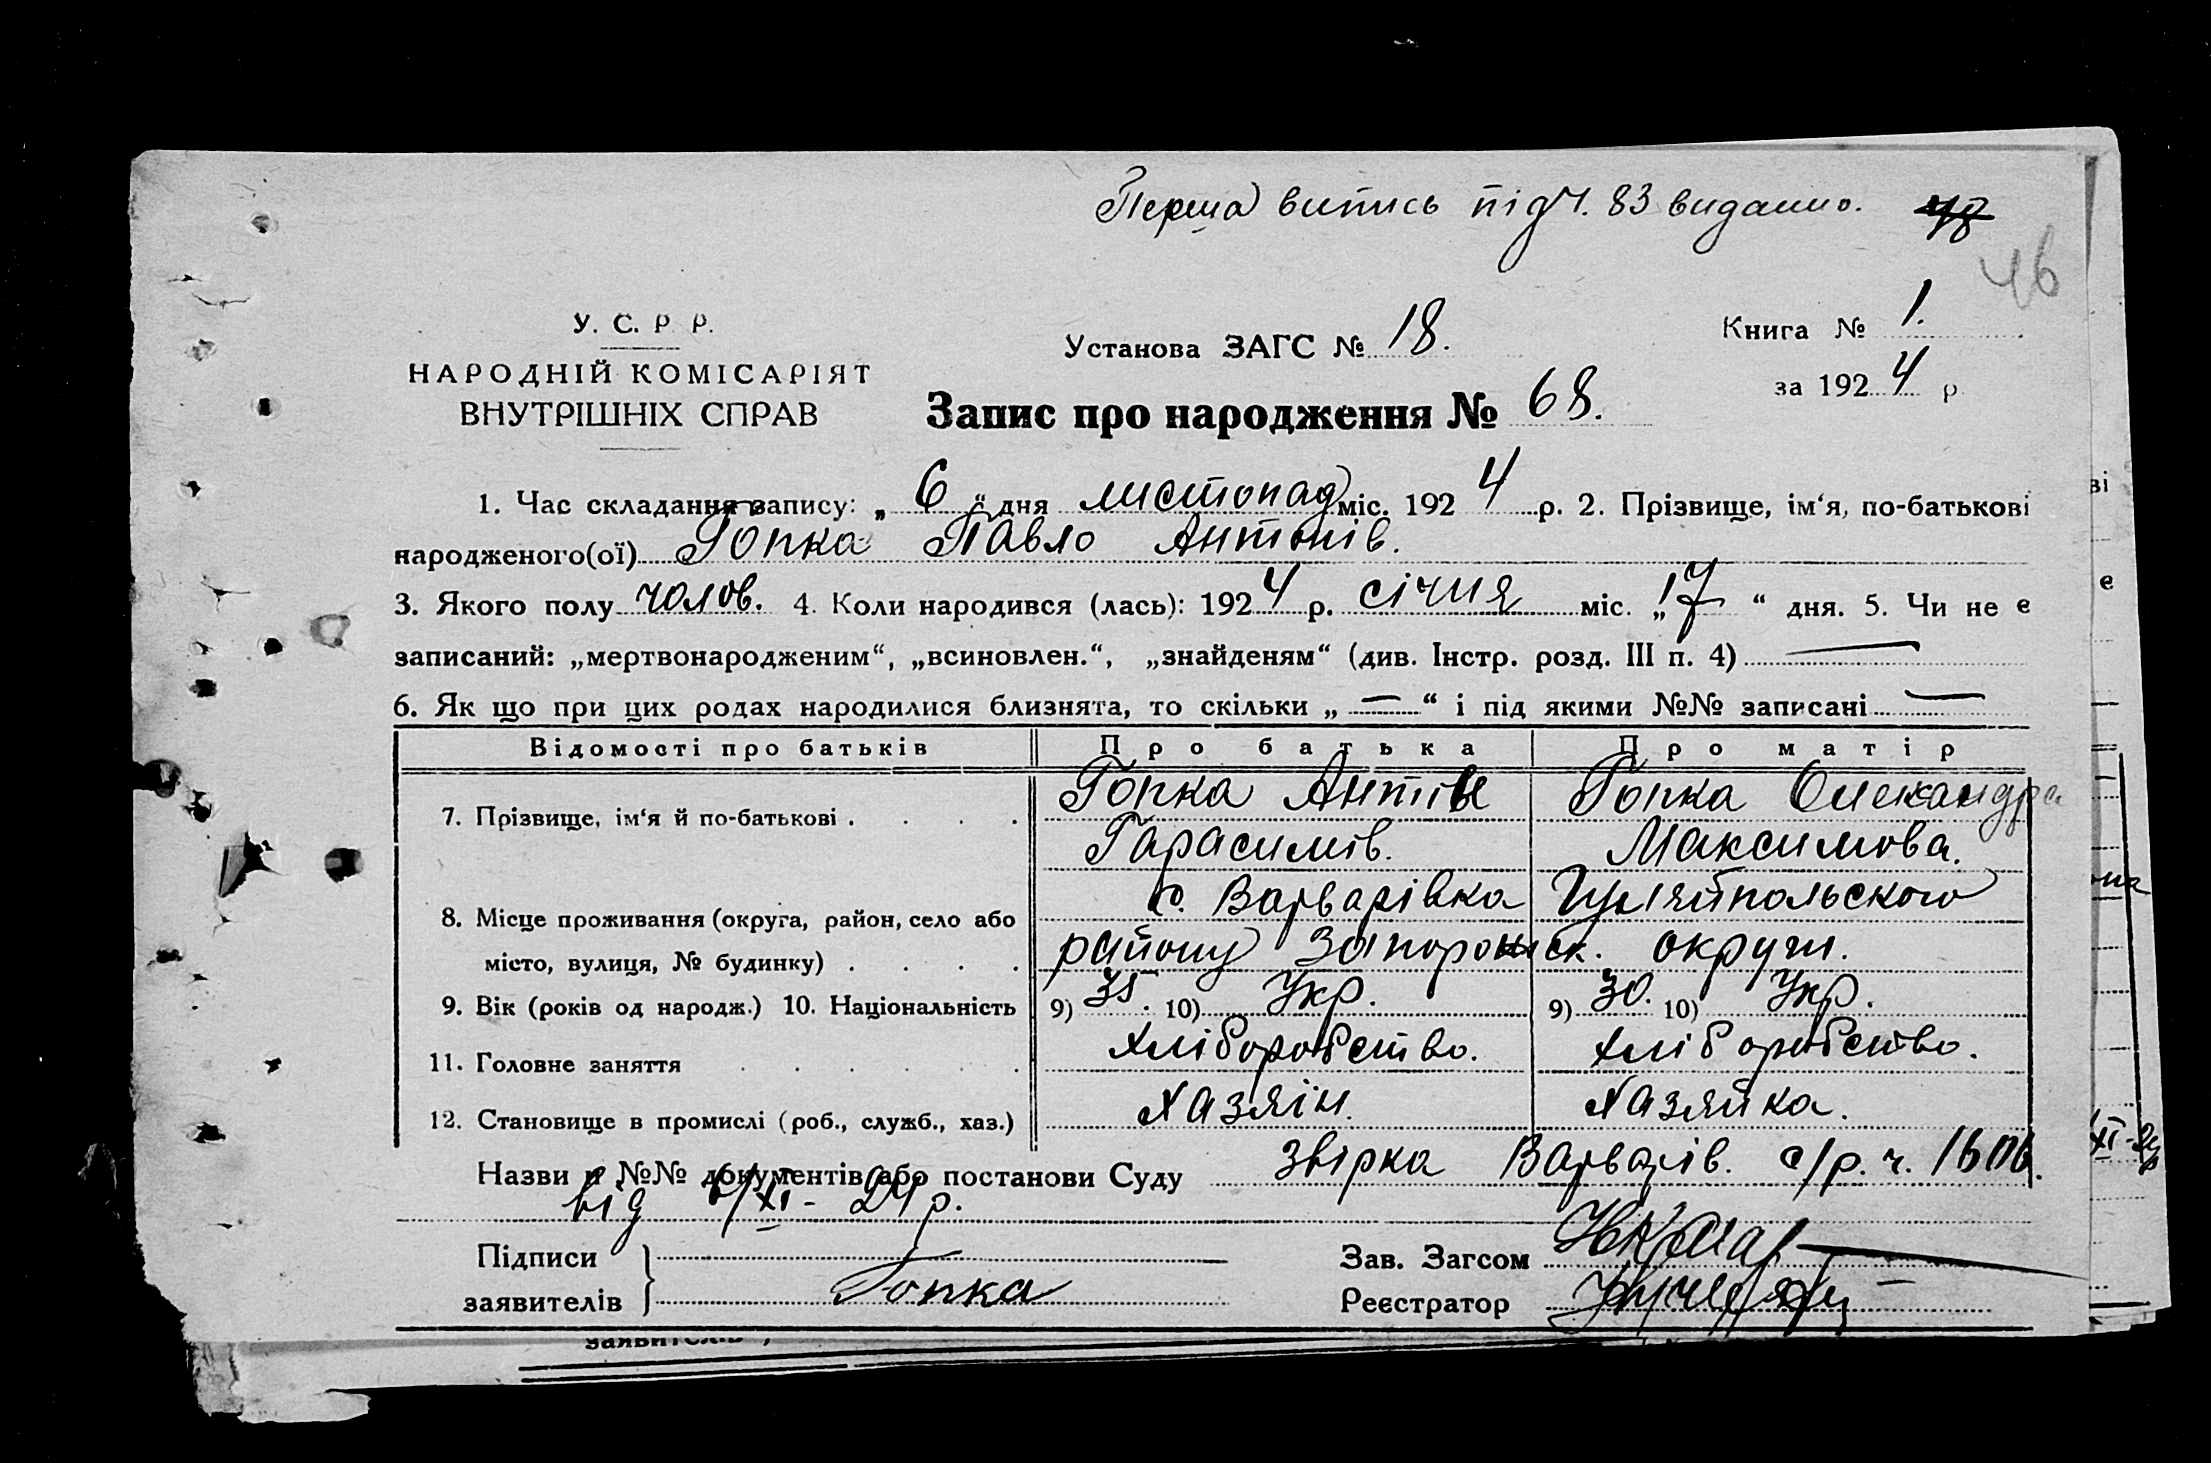 Перша випись під Ч. 83 видано.
46
У. С. Р. Р.
НАРОДНІЙ КОМІСАРІЯТ
ВНУТРІШНІХ СПРАВ
Установа ЗАГС № 18.
Книга № 1.
за 1924 р.
Запис про народження № 68.
1. Час складання запису: „ 6 “ дня листопад міс. 1924 р. 2. Прізвище, ім‘я, по-батькові
народженого(ої) Гопка Павло Антонів.
3. Якого полу чолов. 4. Коли народився (лась): 1924 р. січня міс. „ 17 “ дня. 5. Чи не є
записаний: „мертвонародженим“, „всиновлен.“, „знайденям“ (див. Інстр. розд. III п. 4) —
6. Як що при цих родах народилися близнята, то скільки „ — “ і під якими №№ записані —
Відомості про батьків Про батька Про матір
7. Прізвище, ім‘я й по-батькові . Гопка Антін Гопка Олександра
Гарасимів. Максимова.
8. Місце проживання (округа, район, село або с. Варварівка Гуляйпольского
місто, вулиця, № будинку) . району Запорожск. округи.
9. Вік (років од народж.) 10. Національність 9) 35. 10) Укр. 9) 30. 10) Укр.
11. Головне заняття хліборобство. хліборобство.
12. Становище в промислі (роб., служб., хаз.) хазяїн. хазяйка.
Назви и №№ документів або постанови Суду звірка Варварів. с/р. ч. 1606.
від 6/XI - 24 р.
Підписи
заявителів Гопка
Зав. Загсом
Реєстратор
заявителів